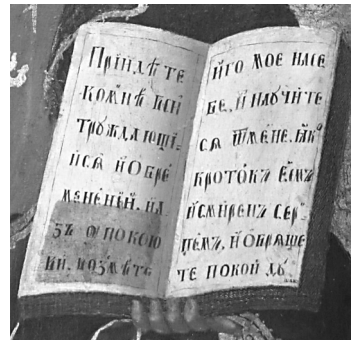 Прїидѣте
комн҃ѣ вси
трꙋждающі-
йсѧ и҆ обре-
мененїи. и҆ а-
зъ ᲂупокою
вы. возмѣте
и҆го мое на се-
бе, и҆ наꙋчите
сѧ ѿмене. ꙗ҆кѡ
кротокъ є҆смъ
и҆ смиренъ сер-
цемъ. и҆ ѡбрѧще-
те покой дꙋ